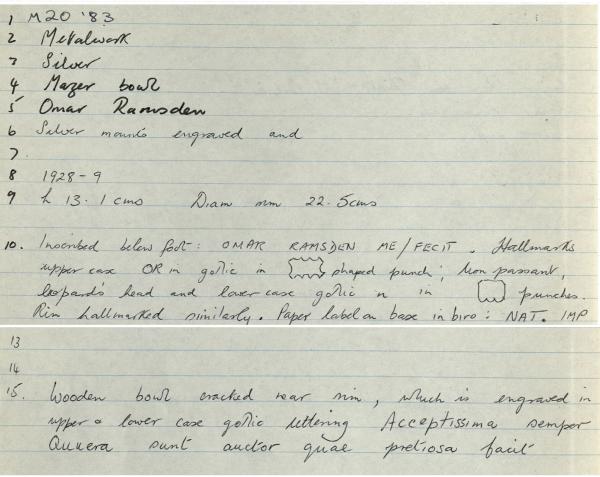 1 M20 '83
2 Metalwork
3 Silver
4 Mazer bowl
5 Omar Ramsden
6 Silver mounts engraved and
7.
8 1928-9
9 h 13.1 cms Diam mm 22.5cms
10. Inscribed below foot: OMAR RAMSDEN ME/FECIT. Hallmarks
upper case OR in gothic in shaped punch; lion passant,
leopard's head and lower case gothic n in punches.
Rim hallmarked similarly. Paper label on base in biro: NAT. IMP
13
14
15. Wooden bowl cracked near rim, which is engraved in
upper & lower case gothic lettering Acceptissima semper
sunt auctor quae pretiosa facit